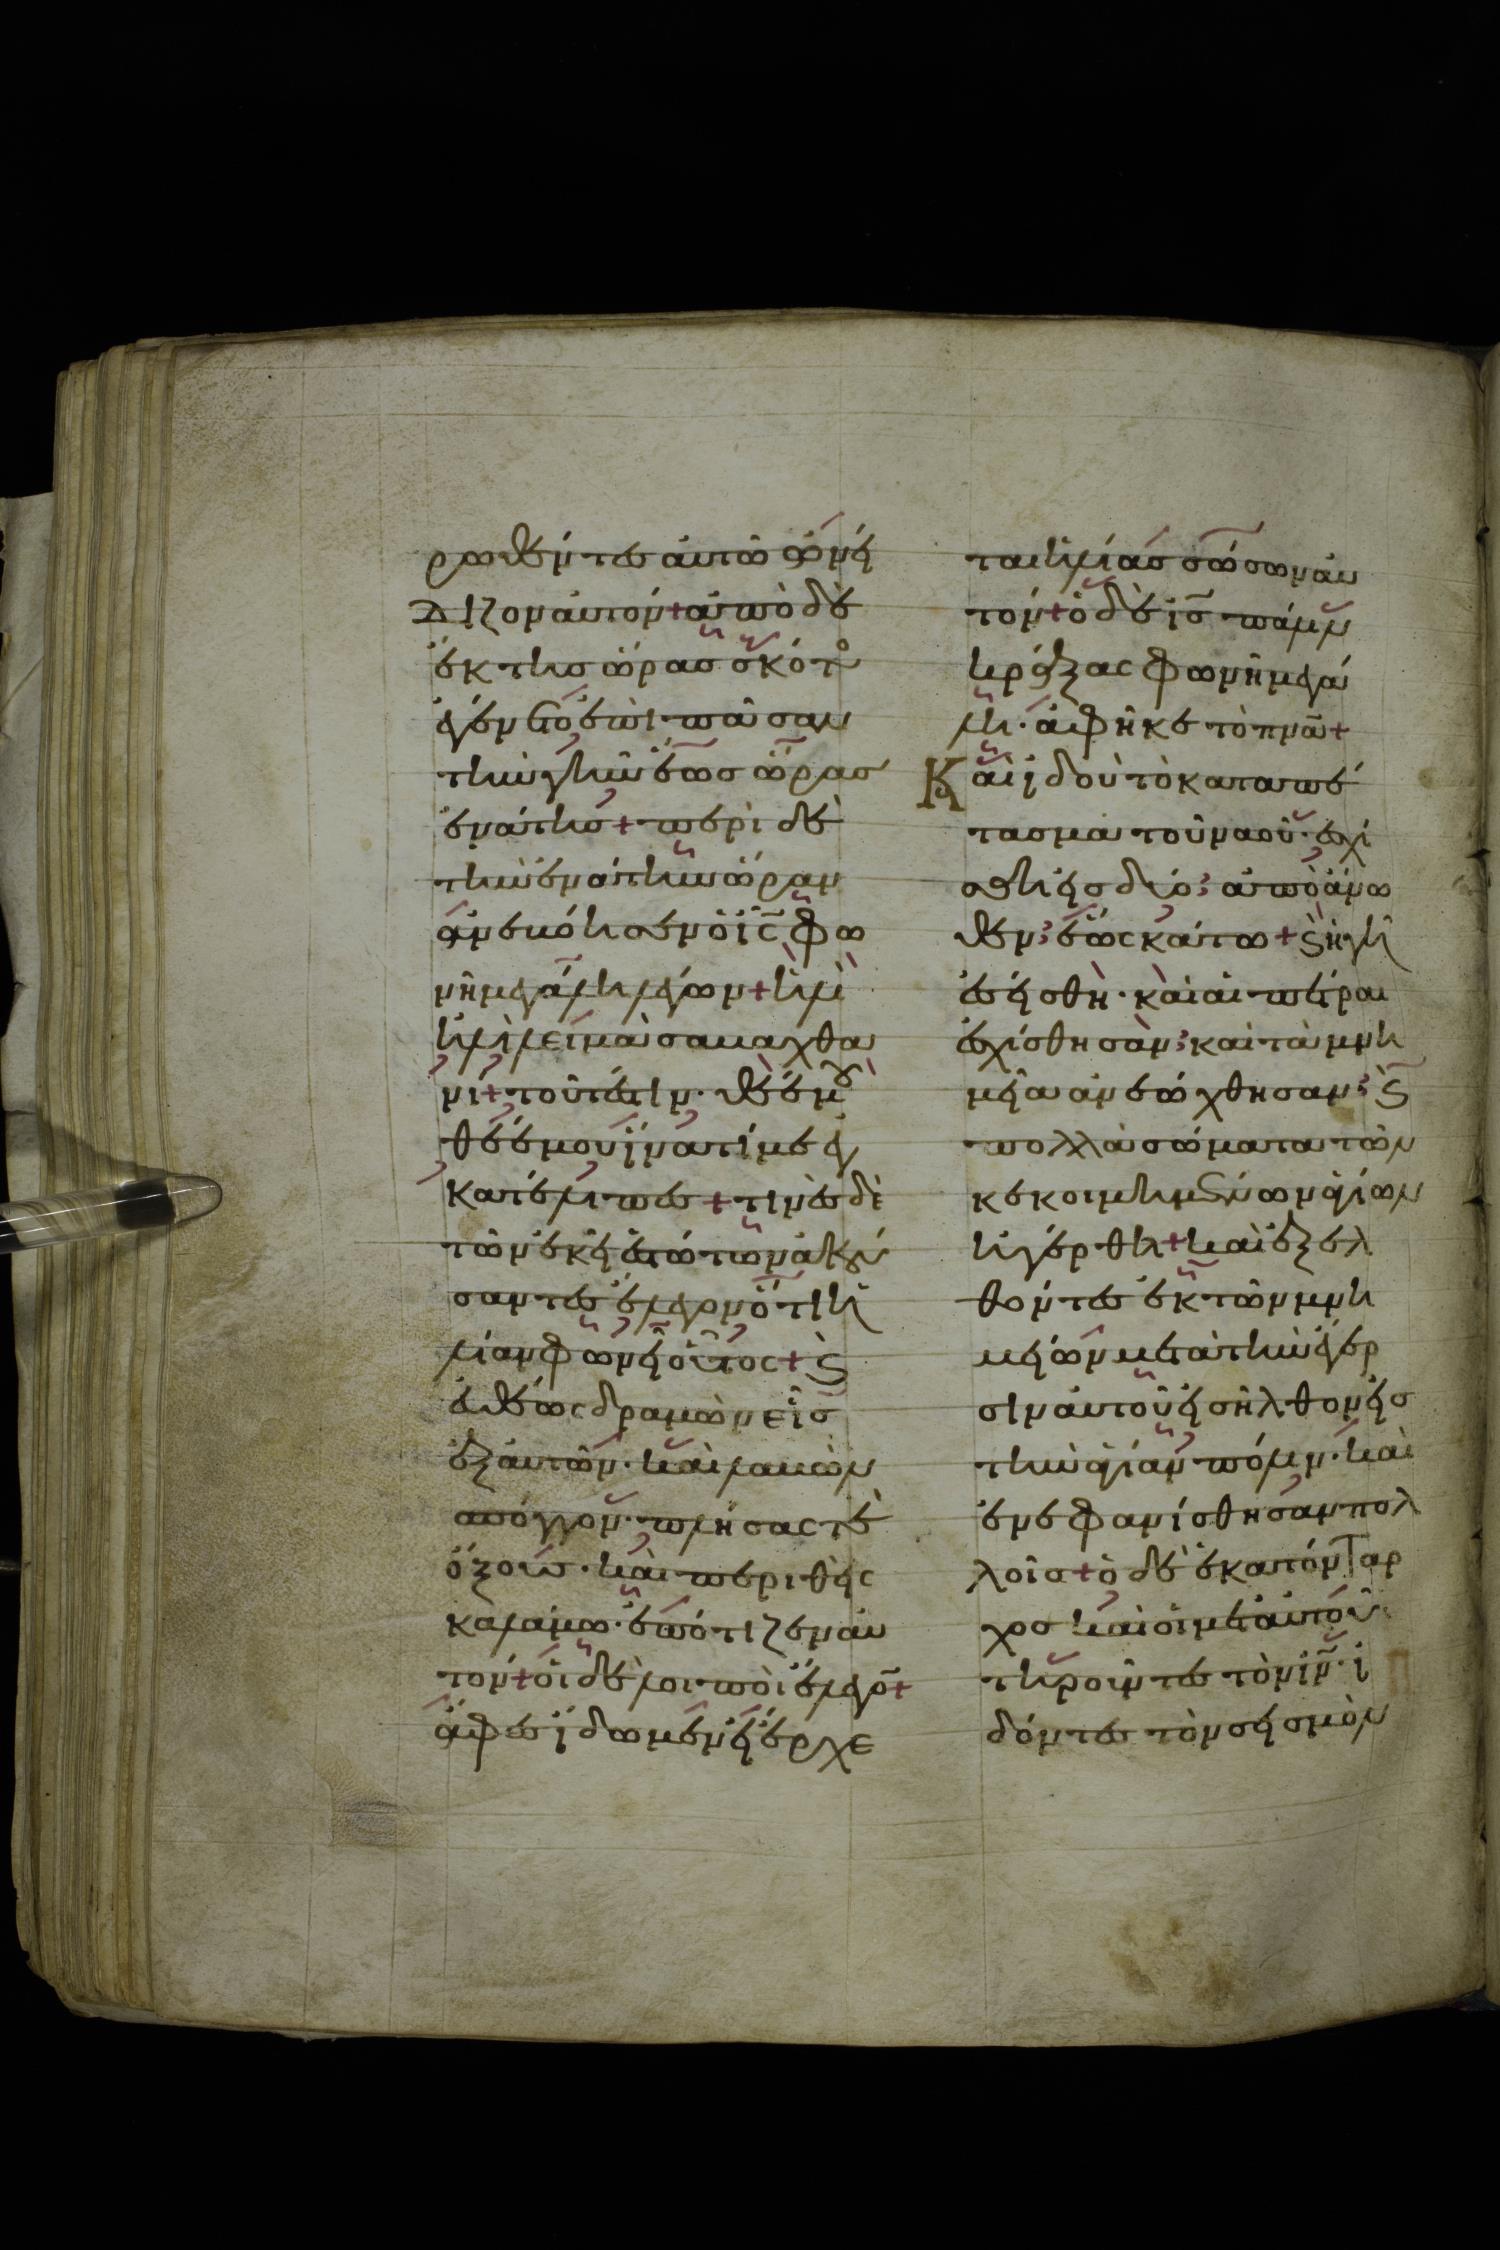 ρωθέντες αὐτῶ ὠνεί
διζον αὐτόν + ἀπὸ δὲ
ἕκτης ὥρας σκότος
ἐγένετο ἐπὶ πᾶσαν
τὴν γῆν ἕως ὥρας
ἐνάτης + περὶ δὲ
τὴν ἐνάτην ὥραν
ἀνεβόησεν ὁ ις φω
νῆ μεγάλη λέγων + ἠλὶ
ἠλὶ λειμὰ σαβαχθα
νι + τοῦτέστιν· θεέ μου
θεέ μου ἵνατί με ἐγ
κατέλιπες + τινὲς δὲ
τῶν ἐκεῖ ἑστώτων ἀκού
σαντες ἔλεγον ὅτι ἠ
λίαν φωνεῖ οὗτος + ϗ
εὐθέως δραμὼν εἷς
ἐξ αὐτῶν· καὶ λαβὼν
σπόγγον· πλήσας τὲ
ὄξους· καὶ περιθεὶς
καλάμω· ἐπότιζεν αὐ
τόν + οἱ δὲ λοιποὶ ἔλεγο +
ἄφες ἴδωμεν εἰ ἔρχε
ται ἠλίας σώσων αὐ
τόν + ὁ δὲ ις πάλιν
κράξας φωνῆ μεγά
λη· ἀφῆκε τὸ πνα +
Καὶ ἰδοὺ τὸ καταπέ
τασμα τοῦ ναοῦ· ἐσχί
σθη εἰς δύο· ἀπὸ ἄνω
θεν· ἕως κάτω + ϗ ἡ γῆ
ἐσείσθη· καὶ αἱ πέτραι
ἐσχίσθησαν· καὶ τὰ μνη
μεῖα ἀνεώχθησαν· ϗ
πολλὰ σώματα τῶν
κεκοιμημένων ἁγίων
ἠγέρθη + καὶ ἐξελ
θόντες ἐκ τῶν μνη
μείων μετὰ τὴν ἔγερ
σιν αὐτοῦ εἰσῆλθον εἰς
τὴν ἁγίαν πόλιν· καὶ
ἐνεφανίσθησαν πολ
λοῖς + ὁ δὲ ἑκατόνταρ
χος καὶ οἱ μετ αὐτοῦ
τηροῦντες τὸν ιν· ἰ
δόντες τὸν σεισμὸν